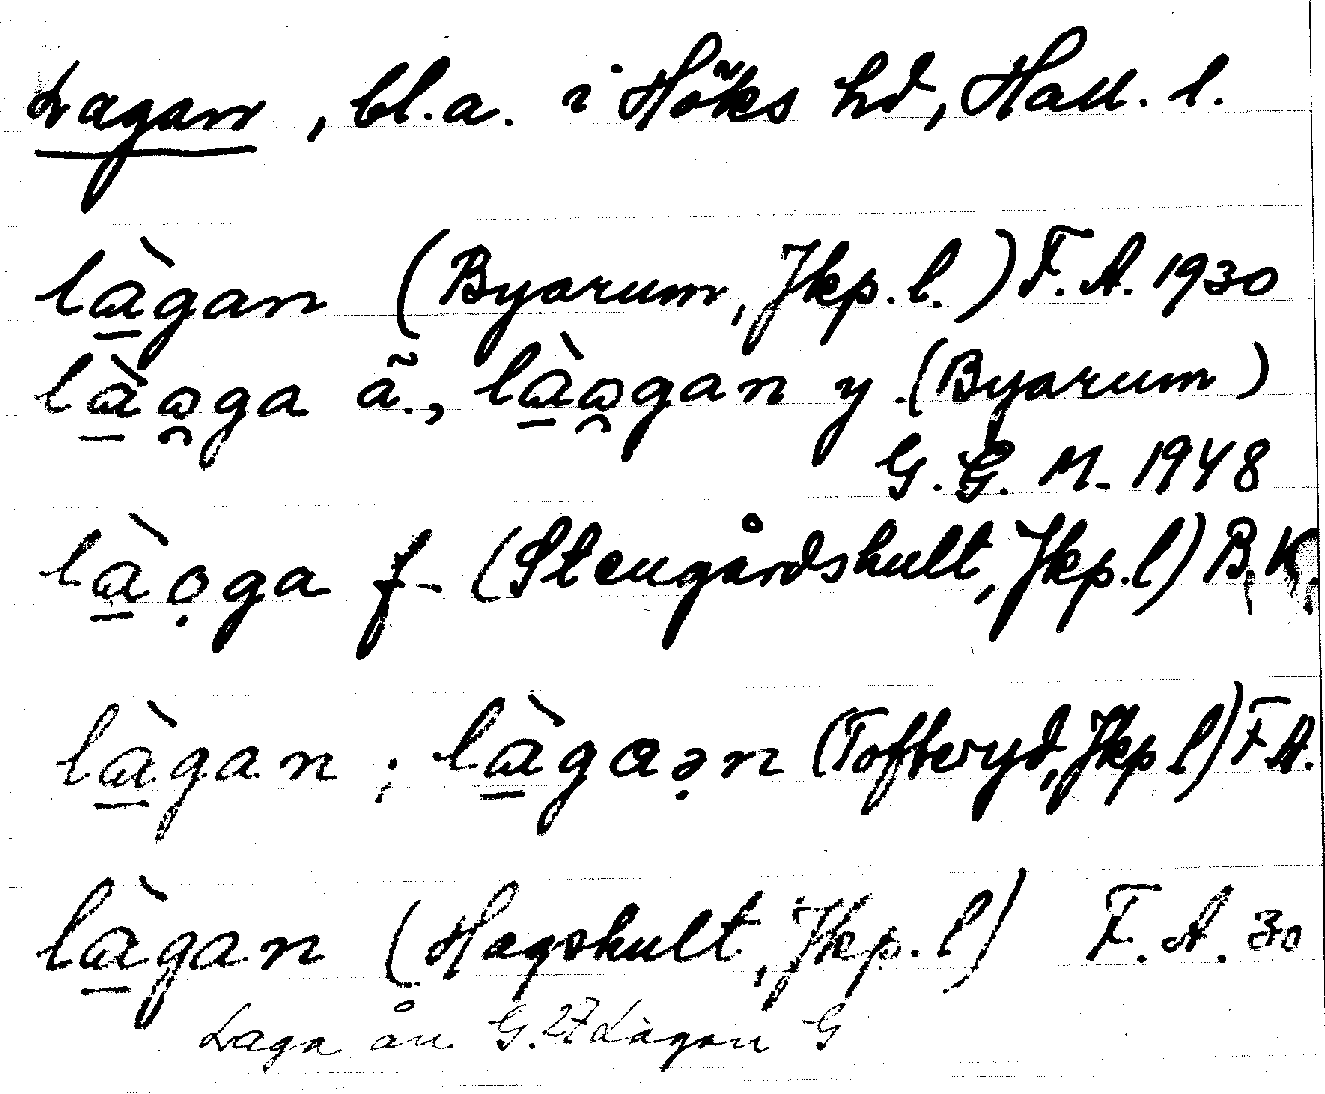 Lagan, bl.a. i Höks hd, Hall. l.
làgan (Byarum, Jkp. l.) F. A. 1930
làǫga ã., làǫgan y. (Byarum)
G. G. M. 1948
làọga f- (Stengårdshult, Jkp. l) B. K.
làgan ; làgaə̣n (Tofteryd, Jkp l) F. A.
làgan (Hagshult, Jkp. l) F. A. 30
Laga ån G. 27 Lagan G